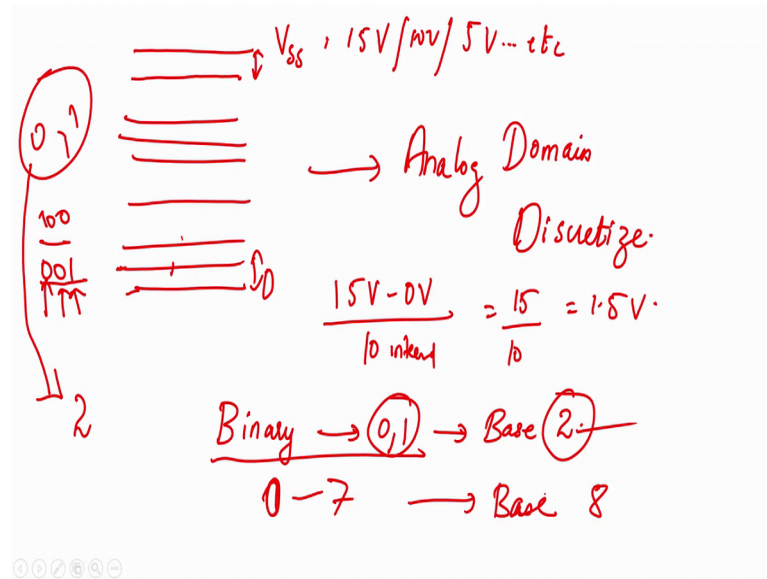 Vss , 15V/10V/5V... etc
0,1
→ Analog Domain
Discretize.
100
001
D
15V-0V / 10 = 15 / 10 = 1.5V.
2
Binary → 0,1 → Base 2
0-7 → Base 8